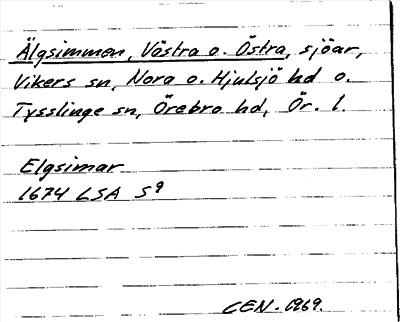 Älgsimmen, Västra o. Östra, sjöar,
Vikers sn, Nora o. Hjulsjö hd o.
Tysslinge sn, Örebro hd, Ör. l.
Elgsimar
1674 LSA S9
CEN. 1969.